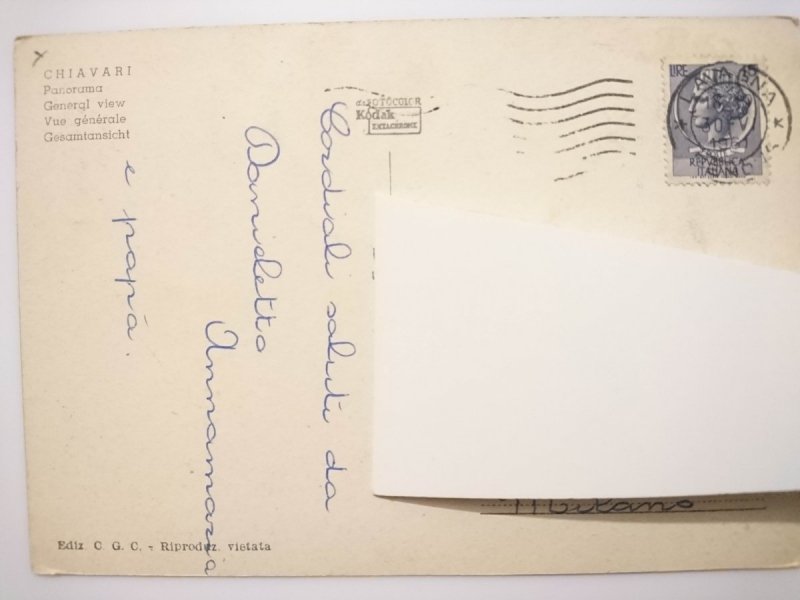 CHIAVARI
Panorama
General view
Vue générale
Gesamtansicht
da FOTOCOLOR
Kodak
EKTACHROME
Cordiali saluti da
Danieletto
Annamaria
e papà.
LIRE
REPVBBLICA
ITALIANA
Milano
Ediz. C. G. C. - Riproduz. vietata